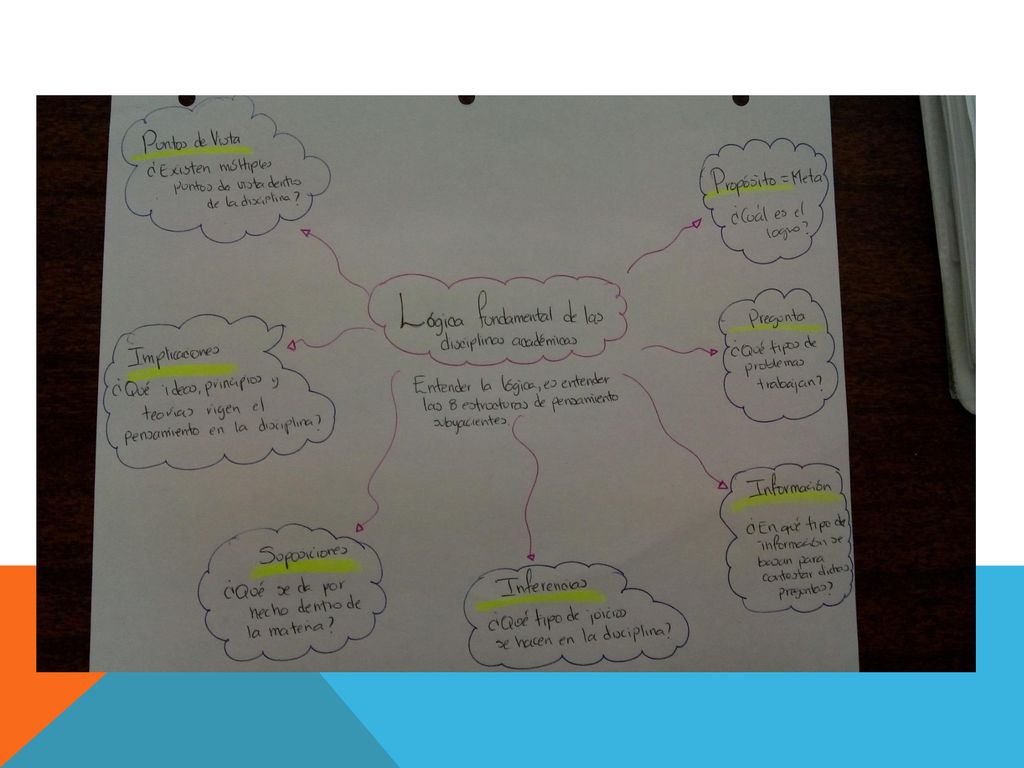 Lógica fundamental de las
disciplinas académicas
Entender la lógica, es entender
las 8 estructuras de pensamiento
subyacentes.
Propósito = Meta
¿Cuál es el
logro?
Pregunta
¿Qué tipos de
problemas
trabajan?
Información
¿En qué tipo de
información se
basan para
contestar dichas
preguntas?
Inferencias
¿Qué tipo de juicios
se hacen en la disciplina?
Suposiciones
¿Qué se da por
hecho dentro de
la materia?
Implicaciones
¿Qué ideas, principios y
teorías rigen el
pensamiento en la disciplina?
Puntos de Vista
¿Existen múltiples
puntos de vista dentro
de la disciplina?